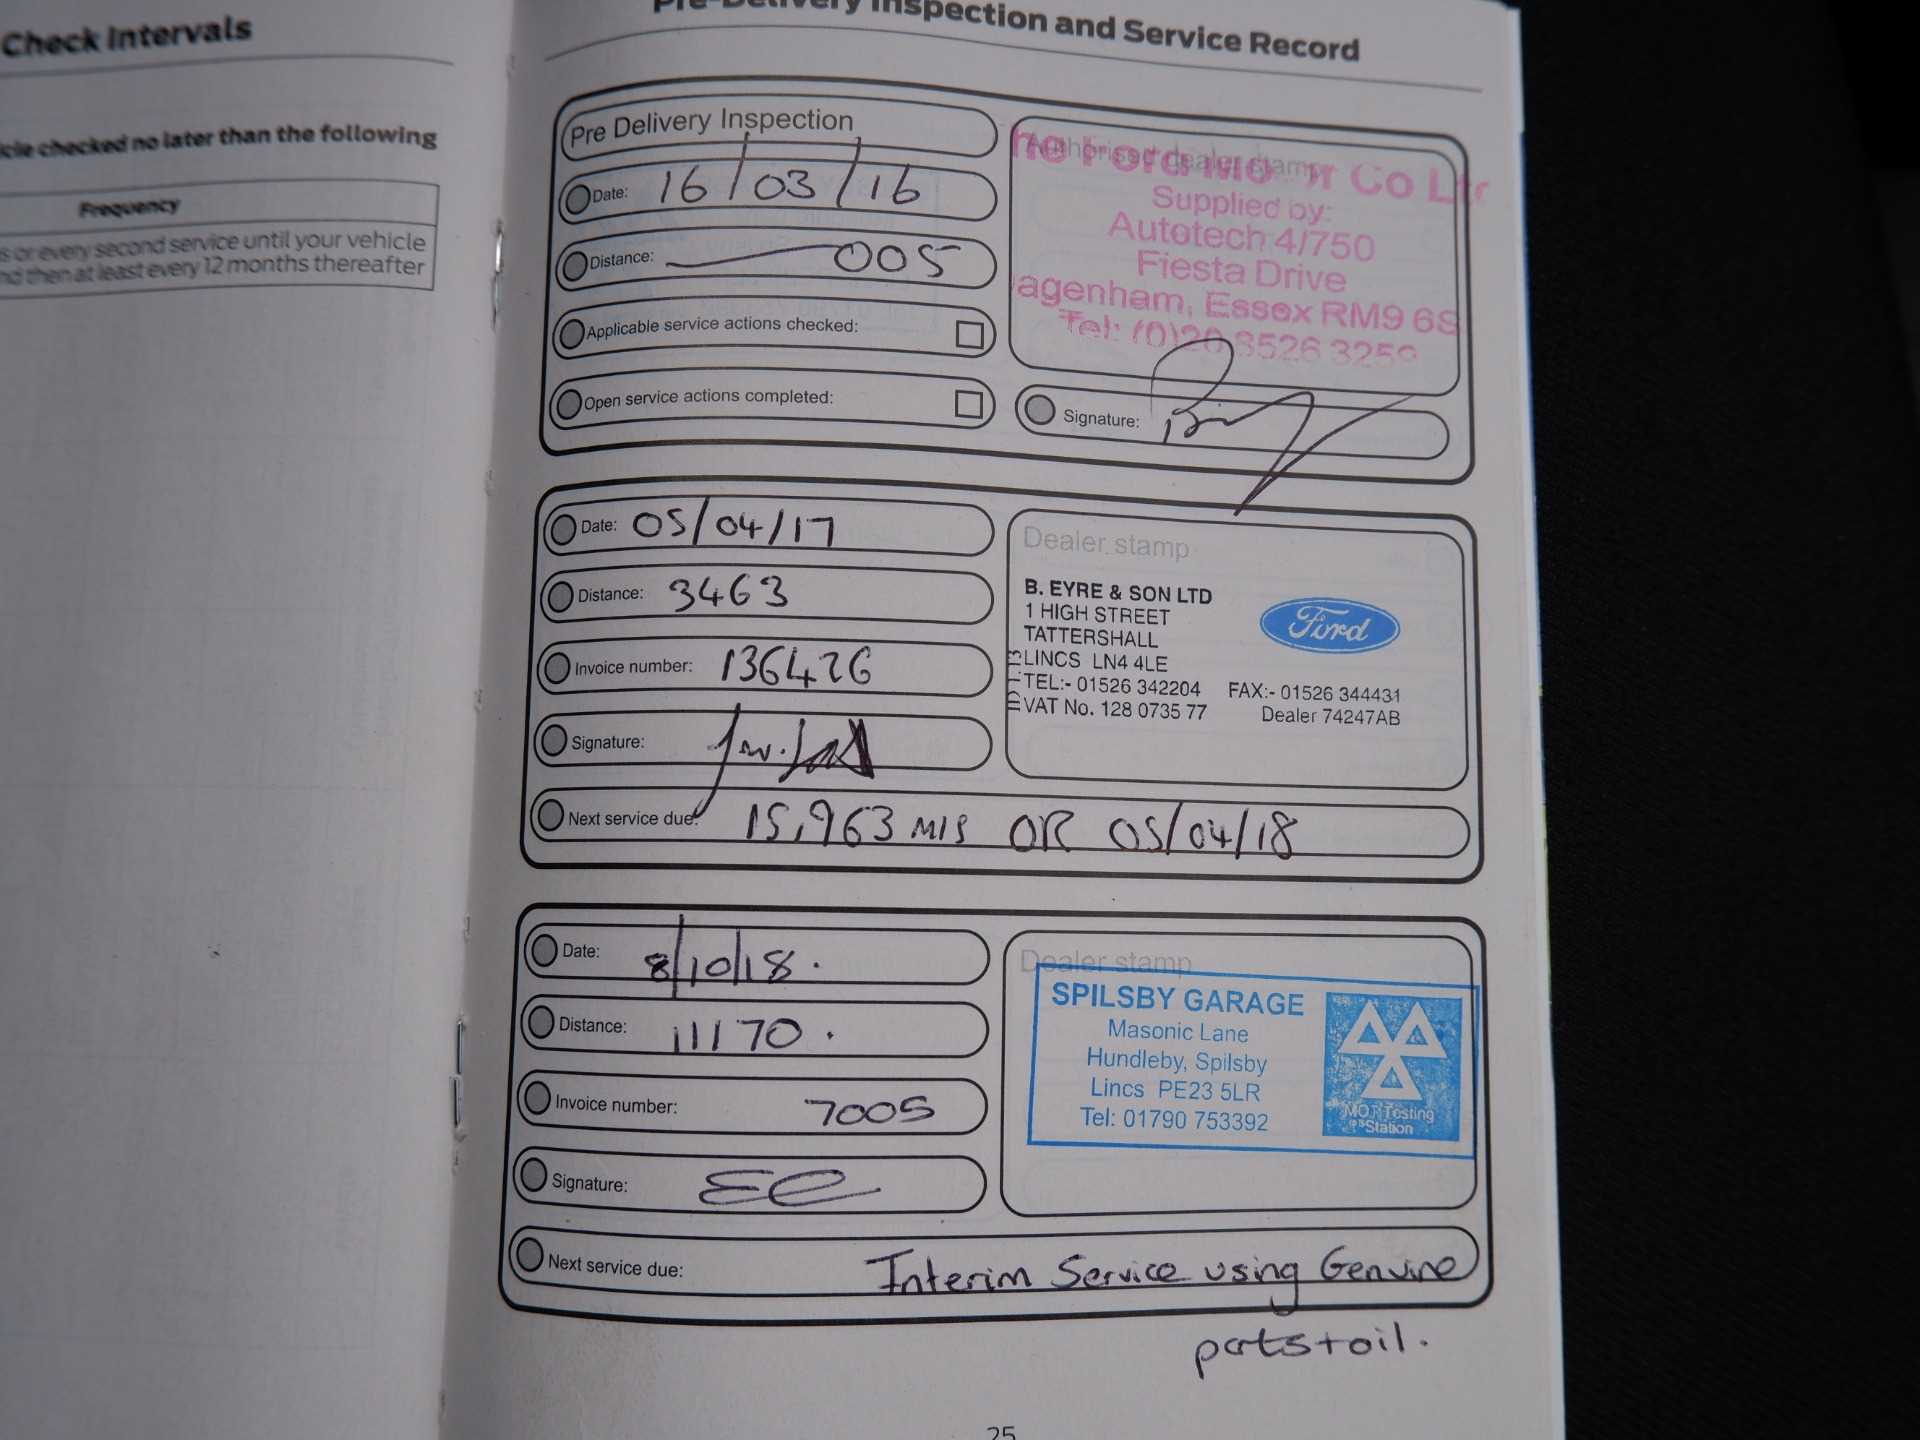 Check Intervals
cle checked no later than the following
Frequency
s or every second service until your vehicle
nd then at least every 12 months thereafter
Pre-Delivery Inspection and Service Record
Pre Delivery Inspection
Date: 16/03/16
Distance: 005
Applicable service actions checked:
Open service actions completed:
Authorised dealer stamp
Ford Co Lt
Supplied by:
Autotech 4/750
Fiesta Drive
agenham, Essex RM9 6S
Tel: (0)20 8526 3259
Signature:
Date: 05/04/17
Distance: 3463
Invoice number: 136426
Signature:
Next service due: 15,963 MLS OR 05/04/18
Dealer stamp
B. EYRE & SON LTD
1 HIGH STREET
TATTERSHALL
LINCS LN4 4LE
TEL:- 01526 342204 FAX:- 01526 344431
VAT No. 128 0735 77 Dealer 74247AB
Ford
Date: 8/10/18.
Distance: 11170.
Invoice number: 7005
Signature:
Next service due: Interim Service using Genuine
parts + oil.
Dealer stamp
SPILSBY GARAGE
Masonic Lane
Hundleby, Spilsby
Lincs PE23 5LR
Tel: 01790 753392
MOT Testing
Station
25